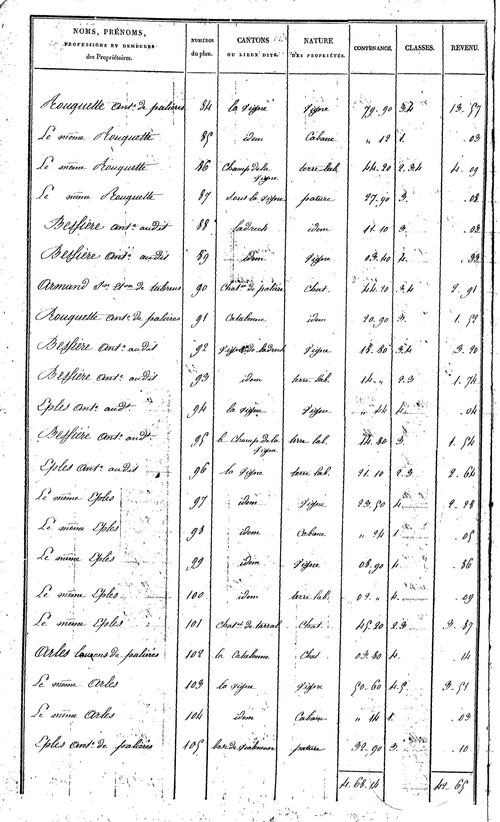 NOMS, PRÉNOMS, PROFESSIONS ET DEMEURES des Propriétaires. NUMÉROS du plan. CANTONS OU LIEUX DITS. NATURE DES PROPRIÉTÉS. CONTENANCE. CLASSES. REVENU.
Rouquette ant.e de palières 84 la vigne vigne 79. 90 3.4 13. 57
Le même Rouquette 85 idem Cabane " 12 1. . 03
Le même Rouquette 86 Champ de la vigne terre lab. 44. 20 2.3.4 4. 09
Le même Rouquette 87 sous la vigne pature 27. 90 3. . 08
Bessière ant.e audit 88 idem 11. 10 3. . 03
Bessière ant.e audit 89 idem vigne 03. 40 4. . 33
Armand de 90 Chat.ns de palière Chat. 44. 20 3.4 2. 91
Rouquette ant.e de palières 91 Catalonne idem 20. 90 3. 1. 52
Bessière ant.e audit 92 vigne 18. 80 3.4 3. 20
Bessière ant.e audit 93 idem terre lab. 14. " 2.3 1. 74
Eples ant.e audt. 94 la vigne vigne " 44 4. . 04
Bessière ant.e audt. 95 Champ de la vigne terre lab. 14. 80 3. 1. 54
Eples ant.e audit 96 la vigne terre lab. 21. 10 2.3 2. 64
Le même Eples 97 idem vigne 23. 50 4. 2. 28
Le même Eples 98 idem Cabane " 24 1 . 05
Le même Eples 99 idem vigne 08. 90 4. . 86
Le même Eples 100 idem terre lab. 02. " 4. . 09
Le même Eples 101 Chat.ns de Chat. 45. 20 2.3 3. 87
Arles laurens de palières 102 la Catalonne Chat 03. 80 4. . 14
Le même Arles 103 la vigne vigne 50. 60 4.5 3. 51
Le même Arles 104 idem Cabane " 14 1. . 03
Eples ant.e de palières 105 pature 32. 90 3. . 10
4. 68. 14 42. 65